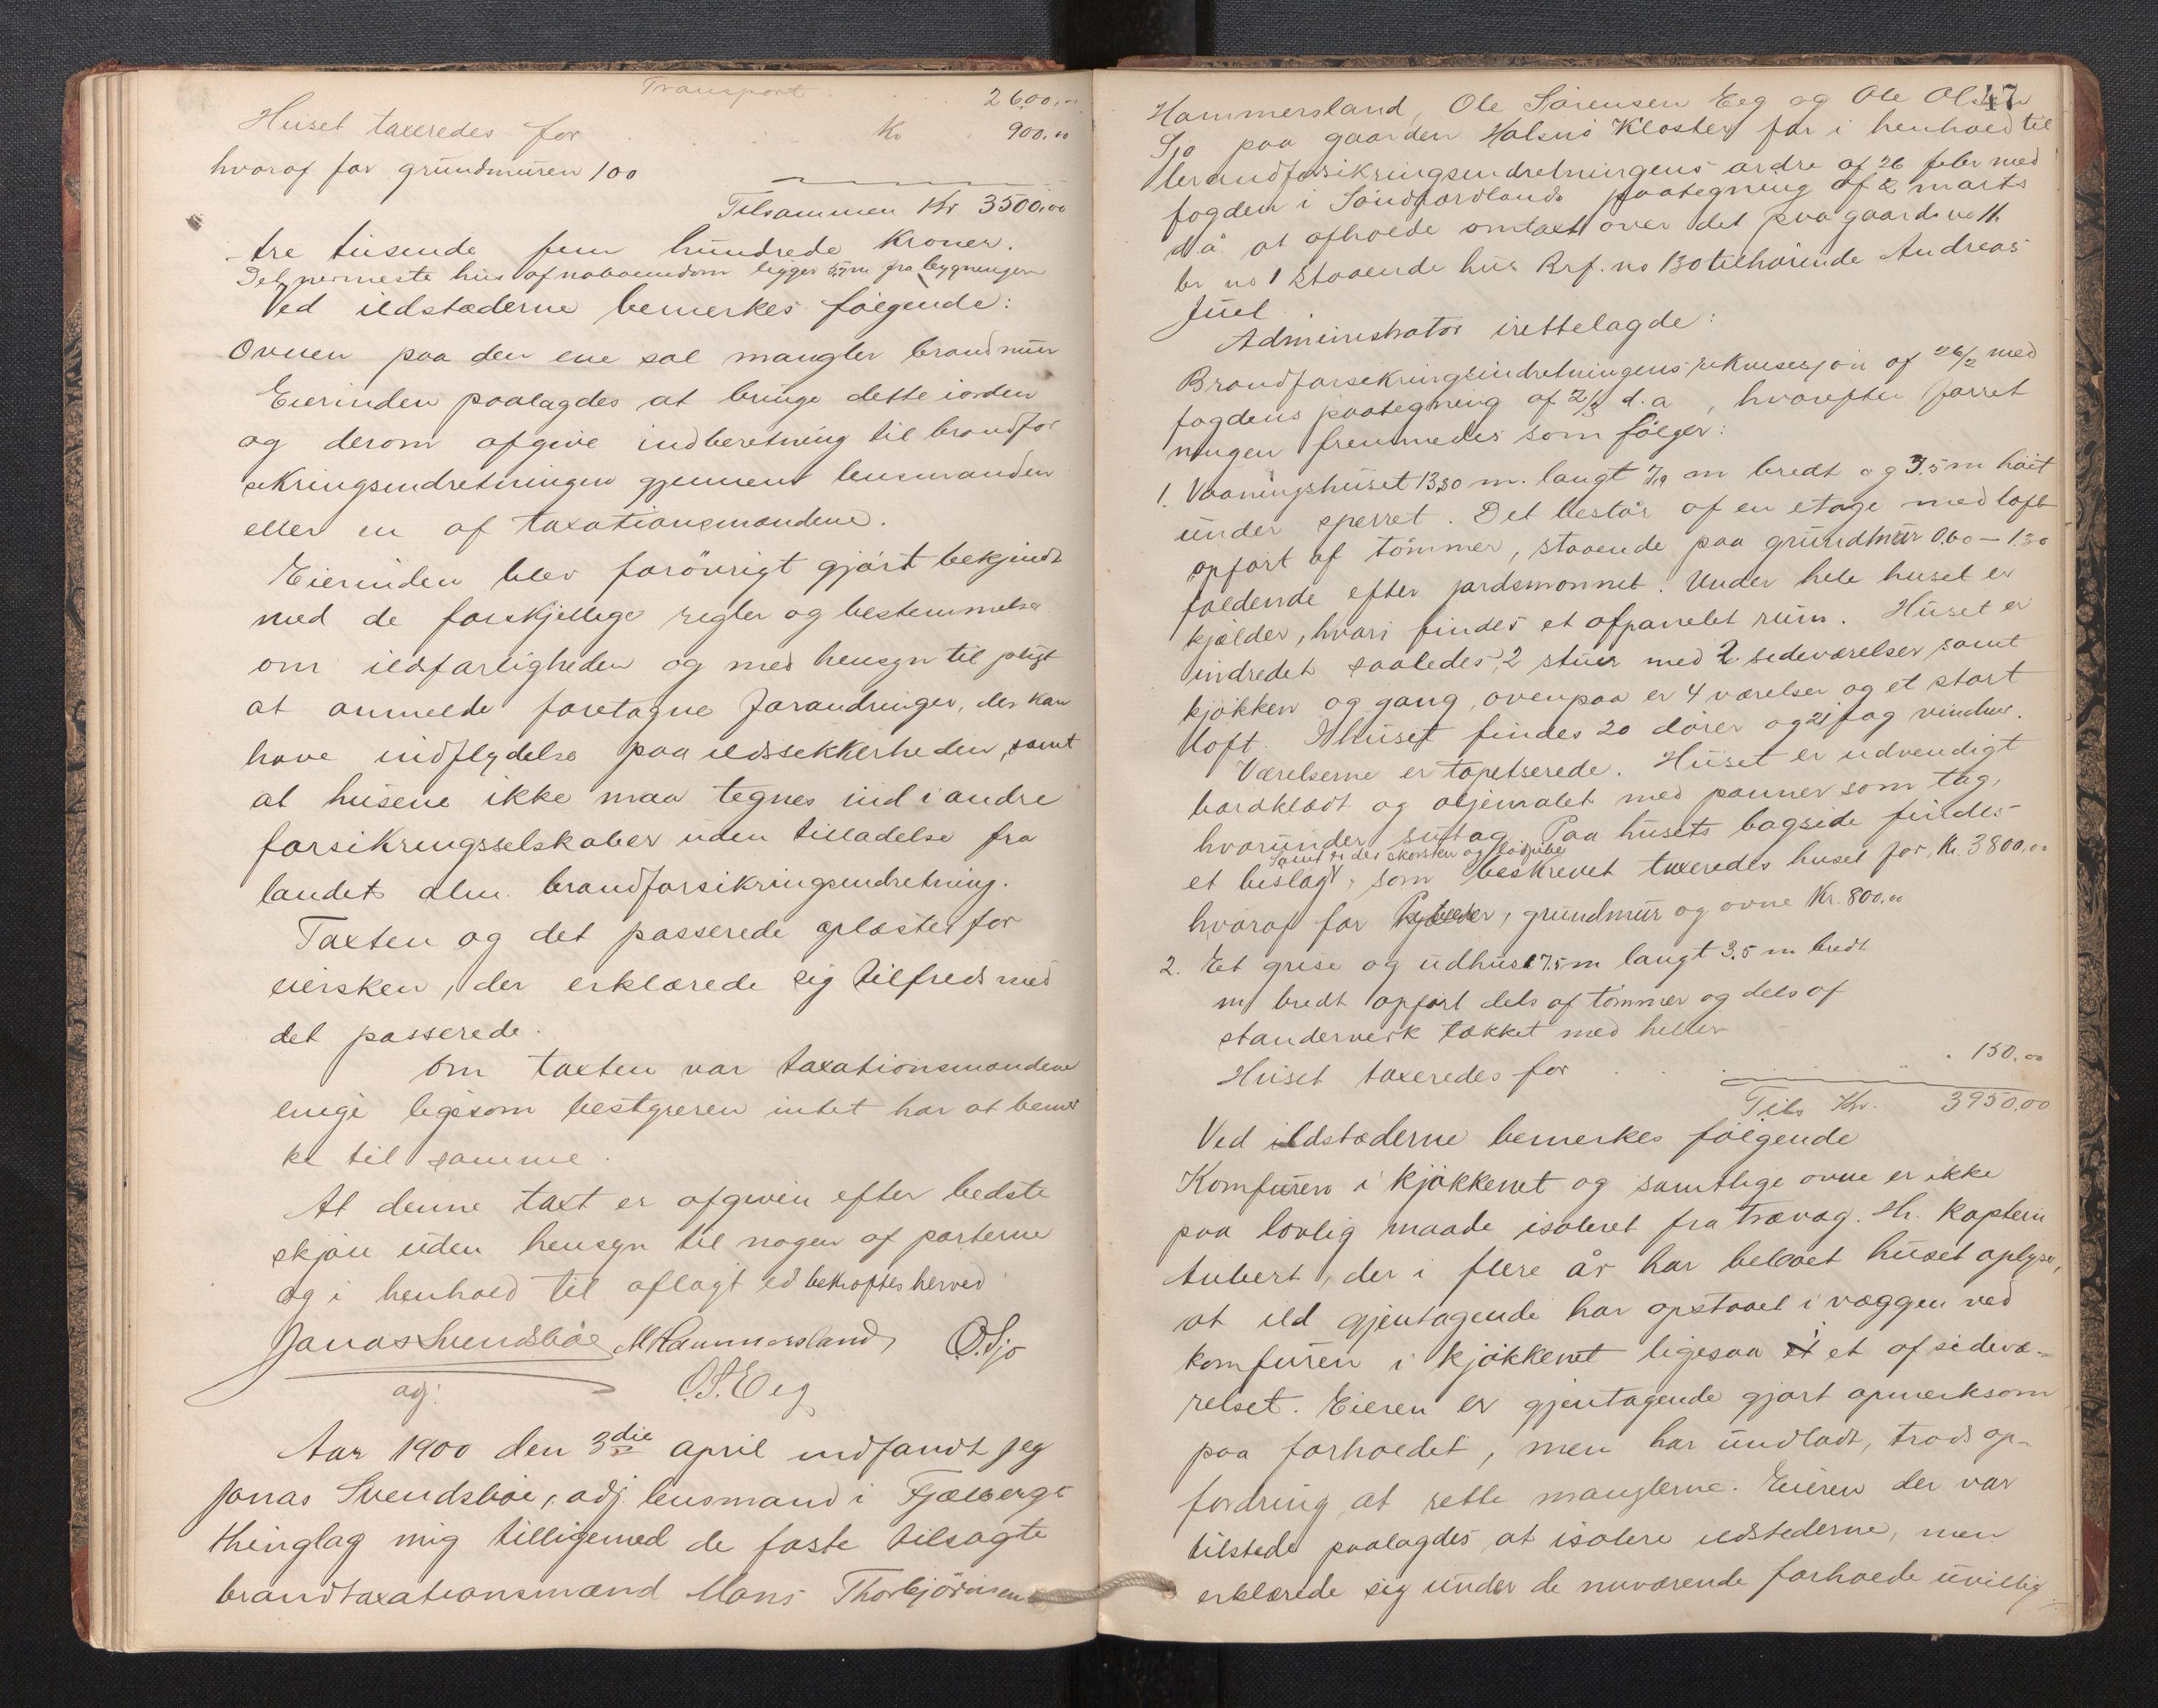 Transport 2600,00
Huset taxeredes for Kr 900.00
hvoraf for grundmuren 100
Tilsammen Kr 3500,00
tre tusende fem hundrede Kroner.
Det nermeste hus af naboeiendom ligger 35 m fra bygningen
Ved ildstæderne bemerkes følgende:
Ovnen paa den ene sal mangler brandmur
Eierinden paalagdes at bringe dette i orden
og derom afgive indberetning til brandfor
sikringsindretningen gjennem lensmanden
eller en af taxationsmændene.
Eierinden blev forøvrigt gjort bekjendt
med de forskjellige regler og bestemmelser
om ildsfarligheden og med hensyn til pligt
at anmelde foretagne forandringer, der kan
have indflydelse paa ildssikkerheden, samt
at husene ikke maa tegnes ind i andre
forsikringsselskaber uden tilladelse fra
landets alm. brandforsikringsindretning.
Taxten og det passerede oplæstes for
eiersken, der erklærede sig tilfreds med
det passerede.
Om taxten var taxationsmændene
enige ligesom bestyreren intet har at bemer
ke til samme.
At denne taxt er afgiven efter bedste
skjøn uden hensyn til nogen af parterne
og i henhold til aflagt ed bekræftes herved
Jonas Svendsbøe M Hammersland O. Sjo
adj: O.S. Eeg
Aar 1900 den 3die april indfandt jeg
Jonas Svendsbøe, adj. lensmand i Fjælbergs
thinglag mig tilligemed de faste tilsagte
brandtaxationsmænd Mons Thorbjørnsen
47
Hammersland, Ole Sørensen Eeg og Ole Olsen
Sjo paa gaarden Halsnø Kloster for i henhold til
brandforsikringsindretningens ordre af 26 febr med
fogden i Søndhordlands paategning af 2 marts
d.å. at afholde omtaxt over det paa gaards no 11.
br no 1 staaende hus Brf. no 130 tilhørende Andreas
Juel.
Administrator irettelagde:
Brandforsikringsindretningens rekvisisjon af 26/2 med
fogdens paategning af 2/3 d.a, hvorefter forret
ningen fremmedes som følger:
1. Vaaningshuset 13,80 m. langt 7,9 m bredt og 3.5 m høit
under sperret. Det består af en etage med loft
opført af tømmer, staaende paa grundmur 0.60 – 1.30
faldende efter jordsmonnet. Under hele huset er
kjælder, hvori findes et afpanelet rum. Huset er
indredet saaledes, 2 stuer med 2 sideværelser samt
kjøkken og gang, ovenpaa er 4 værelser og et stort
loft. I huset findes 20 dører og 21 fag vinduer.
Værelserne er tapetserede. Huset er udvendigt
bordklædt og oljemalet med panner som tag,
hvorunder sutag. Paa husets bagside findes
Samt er der skorsten og
et bislag, som beskrevet taxeredes huset for, Kr. 3800,00
hvoraf for kjælder, grundmur og ovne Kr. 800.00
2. Et grise og udhus 17.5 m langt 3.5 m bredt
m bredt opført dels af tømmer og dels af
standerverk tækket med heller
Huset taxeredes for 150.00
Tils Kr. 3950.00
Ved ildstæderne bemerkes følgende
Komfuren i kjøkkenet og samtlige ovne er ikke
paa lovlig maade isoleret fra trævæg. Hr. kaptein
Aubert, der i flere år har beboet huset oplyser,
at ild gjentagende har opstaaet i væggen ved
komfuren i kjøkkenet ligesaa i et af sidevæ-
relset. Eieren er gjentagende gjort opmerksom
paa forholdet, men har undladt, trods op-
fordring, at rette manglerne. Eieren der var
tilstede paalagdes at isolere ildstederne, men
erklærede sig under de nuværende forholde uvillig